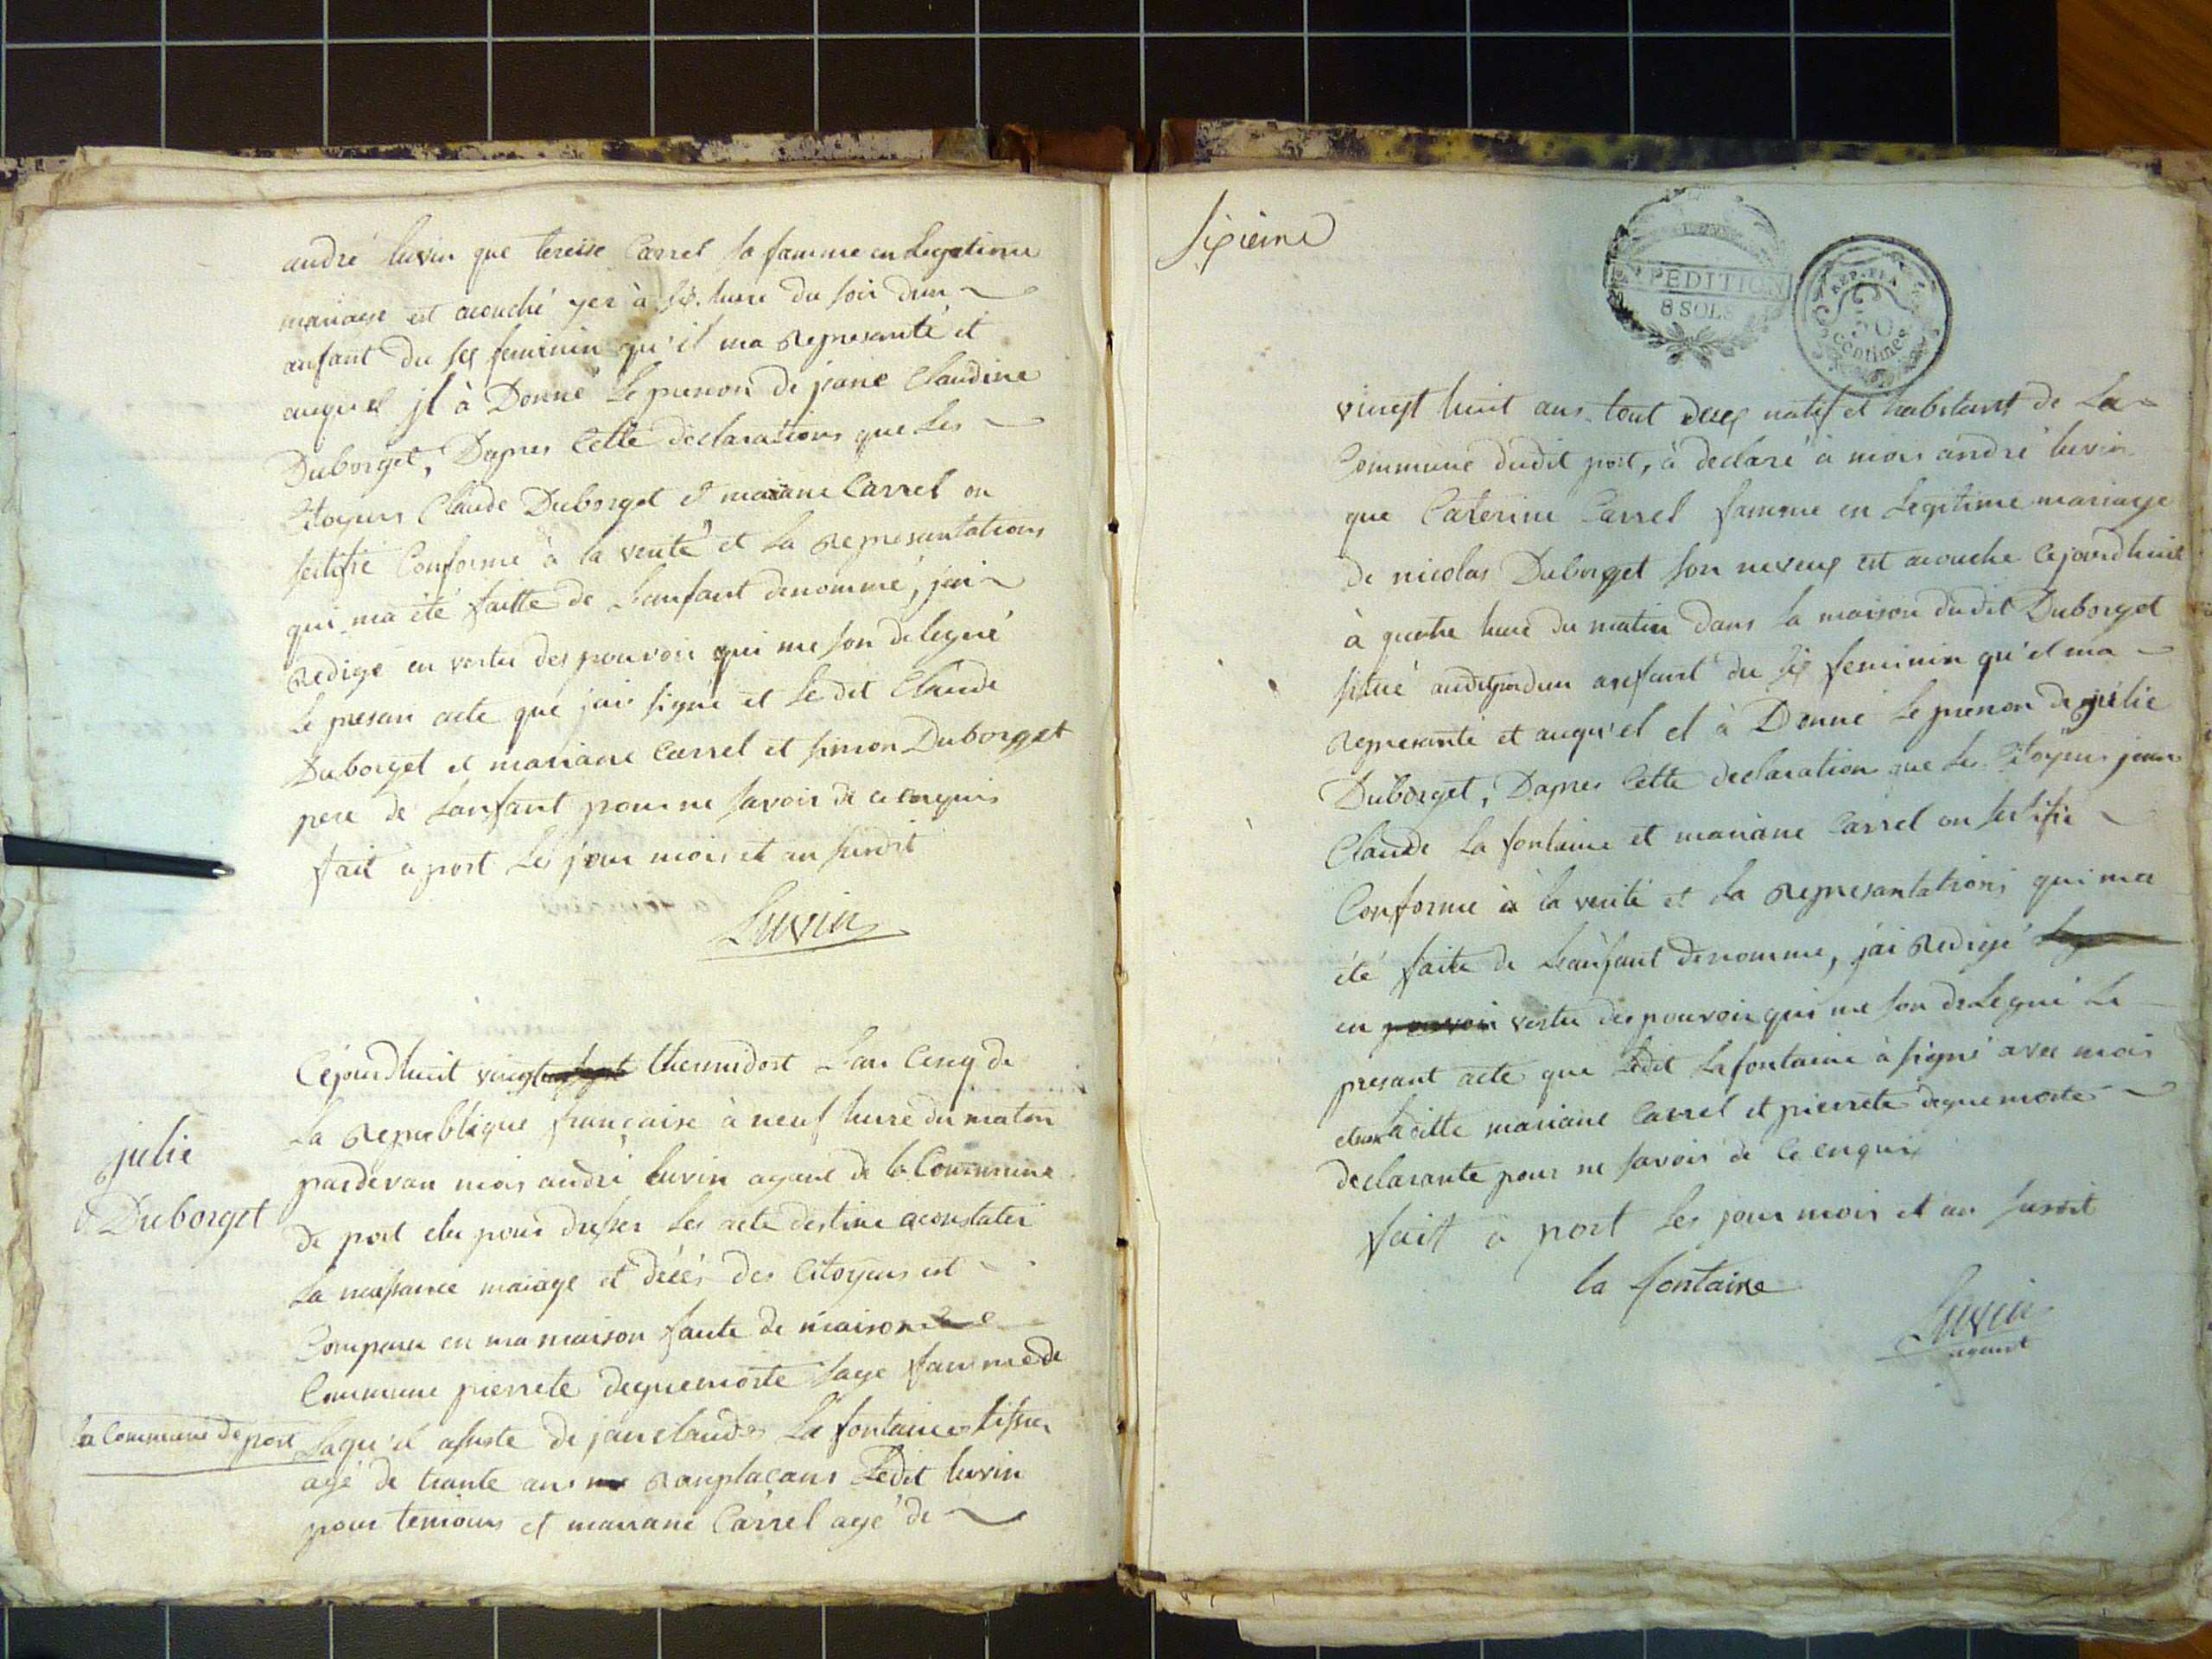 andré luvin que tereise Carrel sa famme en Legetime
mariage est acouché yer à six hure du soir d'un
anfant du sex feminin qu'il ma Represanté et
auquel jl à Donné Le prenon de jeane Claudine
Duborget, Dapres Cette declarations que Les
Citoyens Claude Duborget et mariane Carrel on
sertifié Conforme à la verité et la Represantations
qui ma été faitte de Lanfant denommé, jai
Redigé en vertu des pouvoir qui me son delegué
Le presan acte que jai signé et Le dit Claude
Duborget et mariane Carrel et simon Duborget
pere de Lanfant pour ne savoir de ce enquis
fait à port Les jour mois et an susdit
Luvin
Céjourdhuit vingt thermidort Lan Cinq de
La Republique française à neuf hure du matin
pardevan mois andré luvin agant de la Commune
de port elu pour dresser Les acte destine aconstater
La naissance mariage et décés des Citoyens est
Comparu en ma maison faute de maison
Commune pierrete deguemorte sage famme de
la Commune de port
Laqu'el asisté de jan claude La fontaine tissier
agé de trante ans Ramplaçans Ledit luvin
pour temoins et mariane Carrel agé de
julie
Duborget
sixieme
EXPEDITION
8 SOLS
REP. FRA
50
centimes
vingt huit ans tout deux natif et habitant de La
Commune dudit port, à declaré à mois andré luvin
que Caterine Carrel famme en Legitime mariage
de nicolas Duborget son neveux est acouche Cejourdhuit
à quatre hure du matin dans la maison dudit Duborget
situé audit port dun anfant du sex feminin qu'el ma
represanté et auqu'el el à Donné Le prenon de julie
Duborget, Dapres Cette declaration que Les Citoyens jean
Claude La fontaine et mariane Carrel on sertifié
Conforme à la verité et La Represantations qui ma
été faite de Lanfant denomme, jai Redigé
en vertu des pouvoir qui me son delegué Le
presant acte que Ledit Lafontaine à signé avec mois
et non Laditte mariane Carrel et pierrete deguemorte
declarante pour ne savoir de Ce enquis
faitt à port Les jour mois et an susdit
la fontaine
Luvin
agant